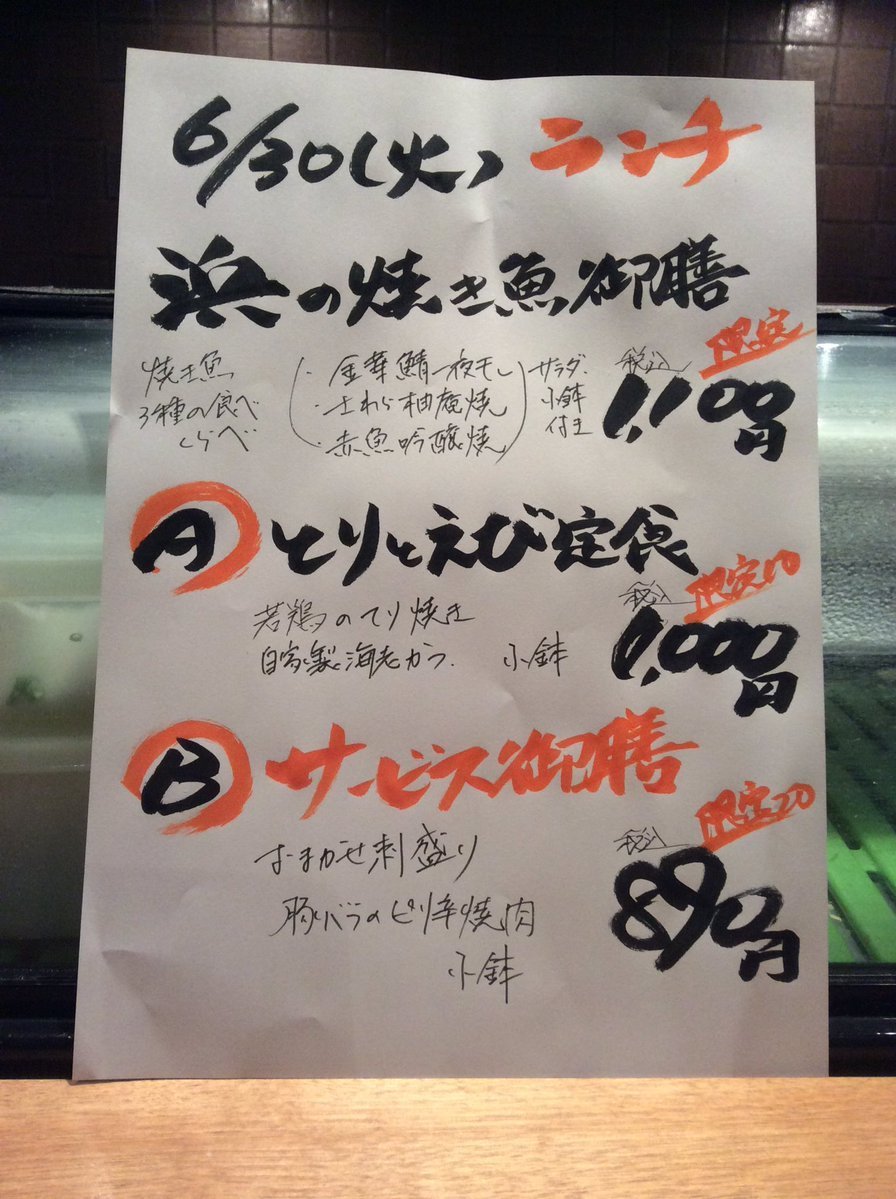 6/30(火) ランチ
浜の焼き魚御膳
限定
焼き魚
3種の食べ
くらべ
・金華鯖一夜干し
・さわら柚庵焼
・赤魚吟醸焼
サラダ・
小鉢
付き
税込
1,100円
A とりとえび定食
限定10
若鶏のてり焼き
自家製海老カツ 小鉢
税込
1,000円
B サービス御膳
限定20
おまかせ刺盛り
豚バラのピリ辛焼肉
小鉢
税込
890円